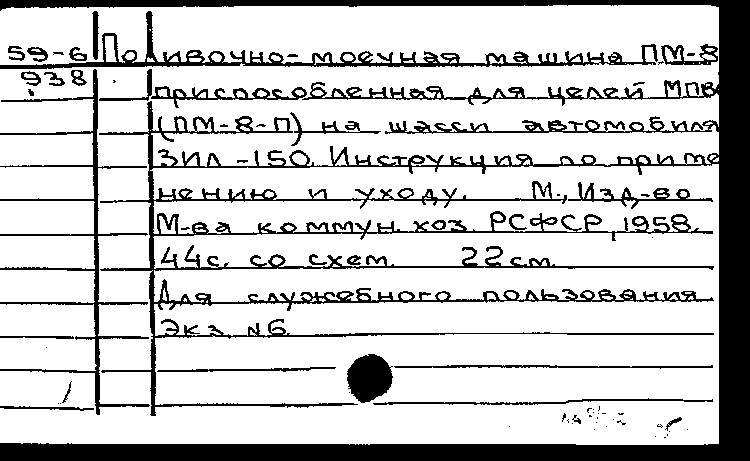 59-6 Поливочно-моечная машина ПМ-8
938
приспособленная для целей МПВ
(ПМ-8-П) на шасси автомобиля
ЗИЛ-150. Инструкция по приме
нению и уходу. М., Изд-во
М-ва коммун. хоз. РСФСР, 1958.
44с. со схем. 22см.
Для служебного пользования
Экз. №6